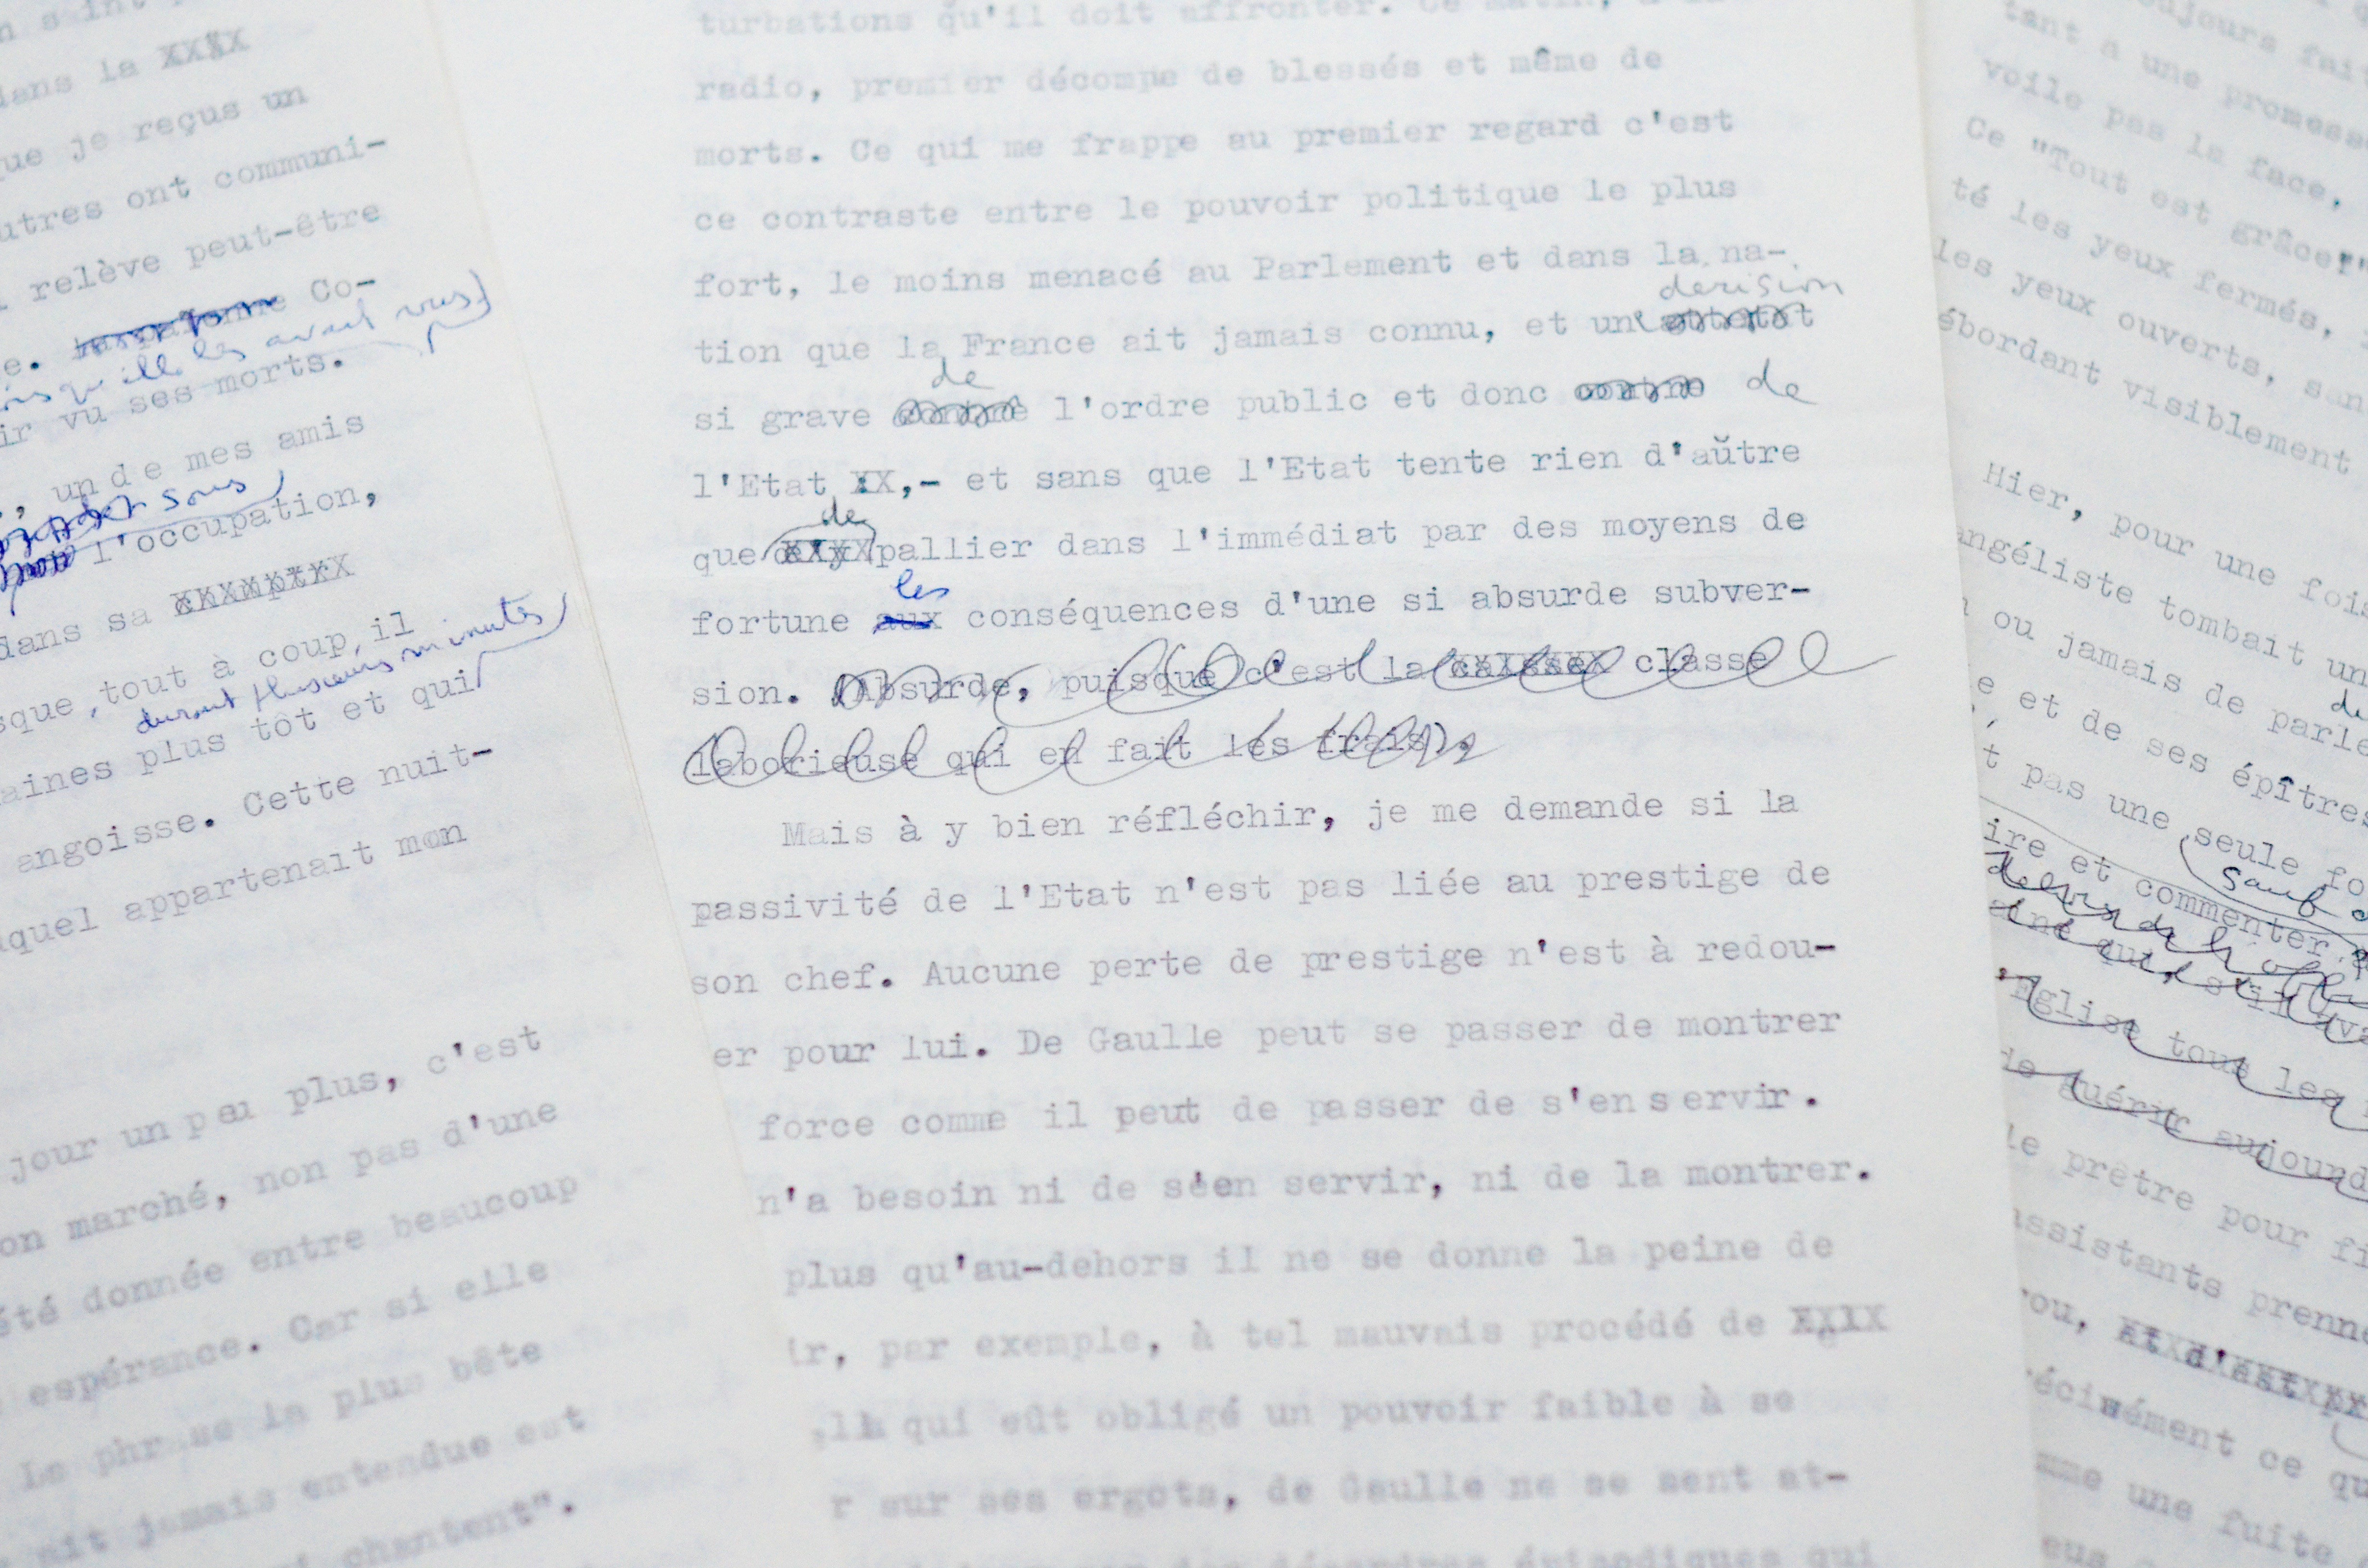 dans la
que je reçus un
utres ont communi-
relève peut-être
Co-
vu ses morts.
un de mes amis
sous
l'occupation,
dans sa
sque, tout à coup, il
durant plusieurs minutes
aines plus tôt et qui
angoisse. Cette nuit-
quel appartenait mon
jour un peu plus, c'est
on marché, non pas d'une
été donnée entre beaucoup
espérance. Car si elle
La phrase la plus bête
ait jamais entendue est
chantent".
turbations qu'il doit affronter. Ce matin, à
radio, premier décompte de blessés et même de
morts. Ce qui me frappe au premier regard c'est
ce contraste entre le pouvoir politique le plus
fort, le moins menacé au Parlement et dans la na-
derision
tion que la France ait jamais connu, et une attentat
de
si grave contre l'ordre public et donc contre de
l'Etat XX,- et sans que l'Etat tente rien d'aŭtre
de
que pallier dans l'immédiat par des moyens de
les
fortune aux conséquences d'une si absurde subver-
sion. (Absurde, puisque c'est la caisse classe
laborieuse qui en fait les frais).
Mais à y bien réfléchir, je me demande si la
passivité de l'Etat n'est pas liée au prestige de
son chef. Aucune perte de prestige n'est à redou-
er pour lui. De Gaulle peut se passer de montrer
force comme il peut de passer de s'en servir.
n'a besoin ni de s'en servir, ni de la montrer.
plus qu'au-dehors il ne se donne la peine de
ir, par exemple, à tel mauvais procédé de
qui eût obligé un pouvoir faible à se
r sur ses ergots, de Gaulle ne se sent at-
désordres épisodiques qui
toujours fait
tant à une promesse
voile pas la face,
Ce "Tout est grâce!"
té les yeux fermés,
les yeux ouverts, san
ébordant visiblement
Hier, pour une fois
angéliste tombait un
ou jamais de parle
e et de ses épîtres
t pas une seule fo
sauf
ire et commenter
Eglise tous les
de guérir aujourd
le prêtre pour fi
assistants prenne
ou, et d'est
écisément ce qu
mme une fuite
eus